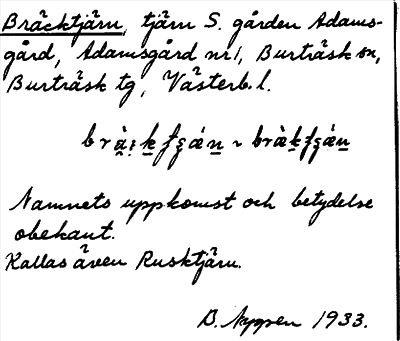 Bräcktjärn, tjärn S. gården Adams-
gård, Adamsgård nr 1, Burträsk sn,
Burträsk tg, Västerb. l.
Namnets uppkomst och betydelse
obekant.
Kallas även Rusktjärn.
1933.